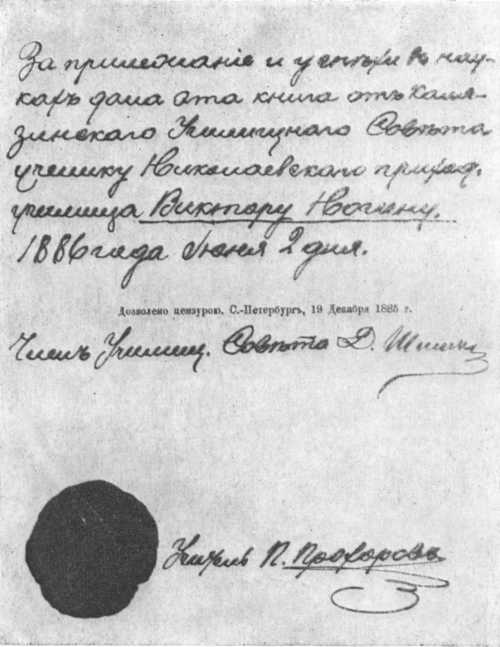 За прилежаніе и успѣхи въ нау-
кахъ дана эта книга отъ Каля-
зинскаго Училищнаго Совѣта
ученику Николаевскаго приход.
училища Виктору Ногину.
1886 года Іюня 2 дня.
Дозволено цензурою. С.-Петербургъ, 19 Декабря 1885 г.
Членъ Училищ. Совѣта Д.
Учитель П. Прохоровъ